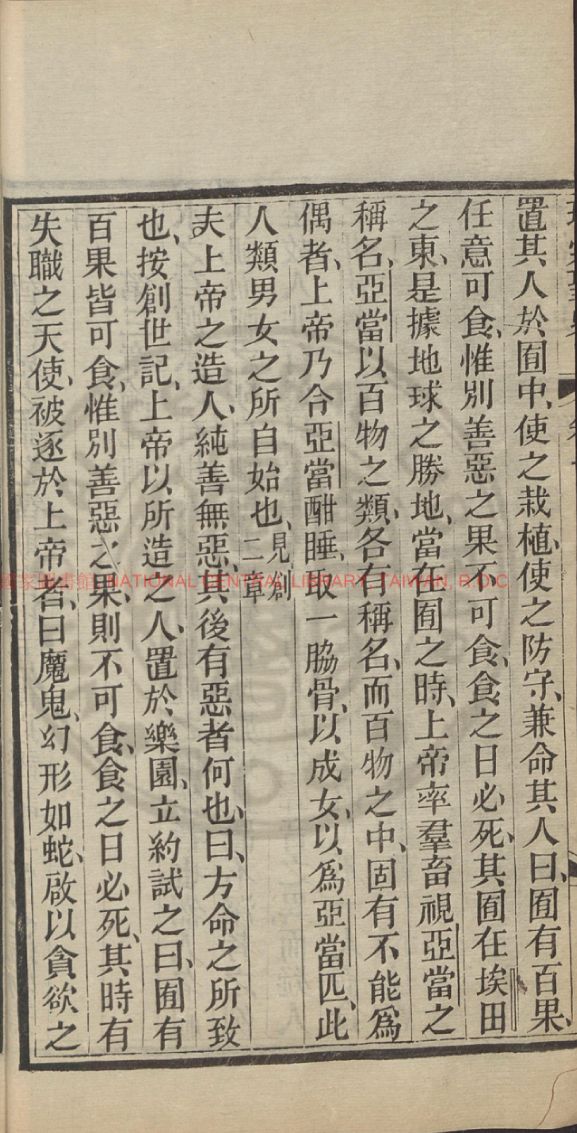 置其人於囿中、使之栽植、使之防守、兼命其人曰、囿有百果、
任意可食、惟別善惡之果不可食、食之日必死、其囿在埃田
之東、是據地球之勝地、當在囿之時、上帝率羣畜視亞當之
稱名、亞當以百物之類、各有稱名、而百物之中、固有不能為
偶者、上帝乃令亞當酣睡、取一脇骨、以成女、以為亞當匹、此
人類男女之所自始也、見創二章
夫上帝之造人、純善無惡、其後有惡者何也、曰、方命之所致
也、按創世記、上帝以所造之人、置於樂園、立約試之曰、囿有
百果皆可食、惟別善惡之果、則不可食、食之日必死、其時有
失職之天使、被逐於上帝者、曰魔鬼、幻形如蛇、啟以貪欲之
NATIONAL CENTRAL LIBRARY, TAIWAN, R.O.C